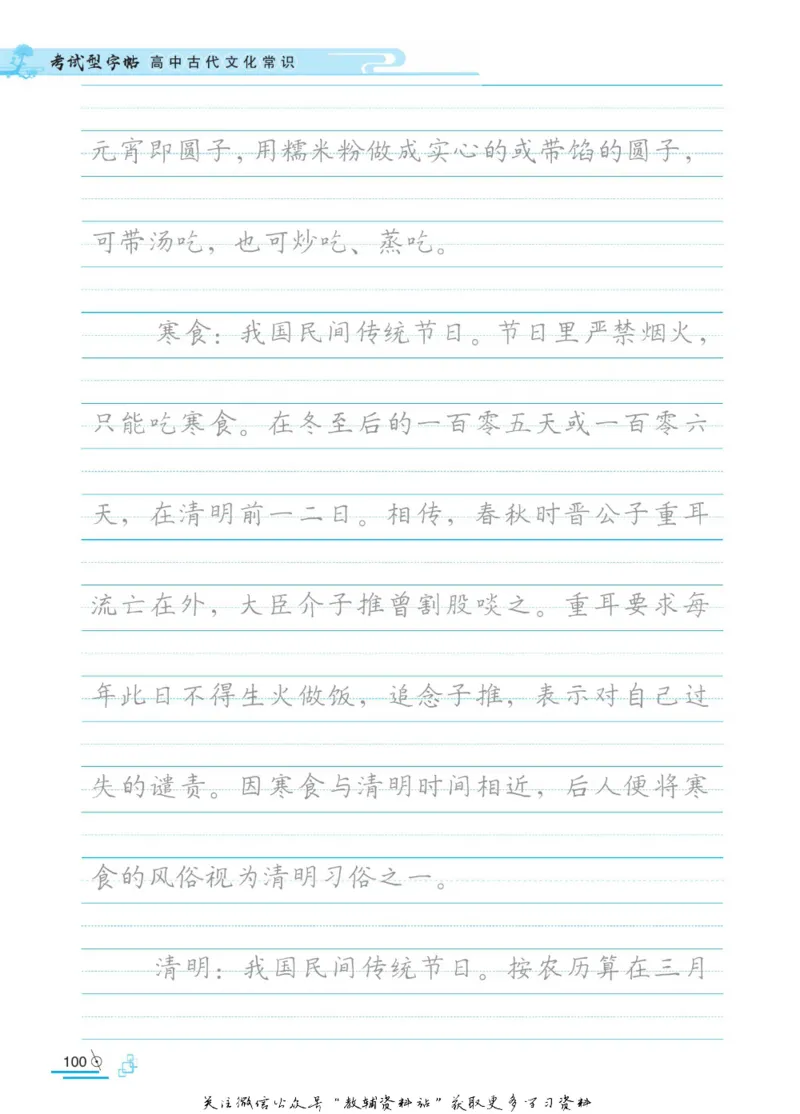 考试型字帖 高中古代文化常识
元宵即圆子，用糯米粉做成实心的或带馅的圆子，
可带汤吃，也可炒吃、蒸吃。
寒食：我国民间传统节日。节日里严禁烟火，
只能吃寒食。在冬至后的一百零五天或一百零六
天，在清明前一二日。相传，春秋时晋公子重耳
流亡在外，大臣介子推曾割股啖之。重耳要求每
年此日不得生火做饭，追念子推，表示对自己过
失的谴责。因寒食与清明时间相近，后人便将寒
食的风俗视为清明习俗之一。
清明：我国民间传统节日。按农历算在三月
100
关注微信公众号“教辅资料站”获取更多学习资料